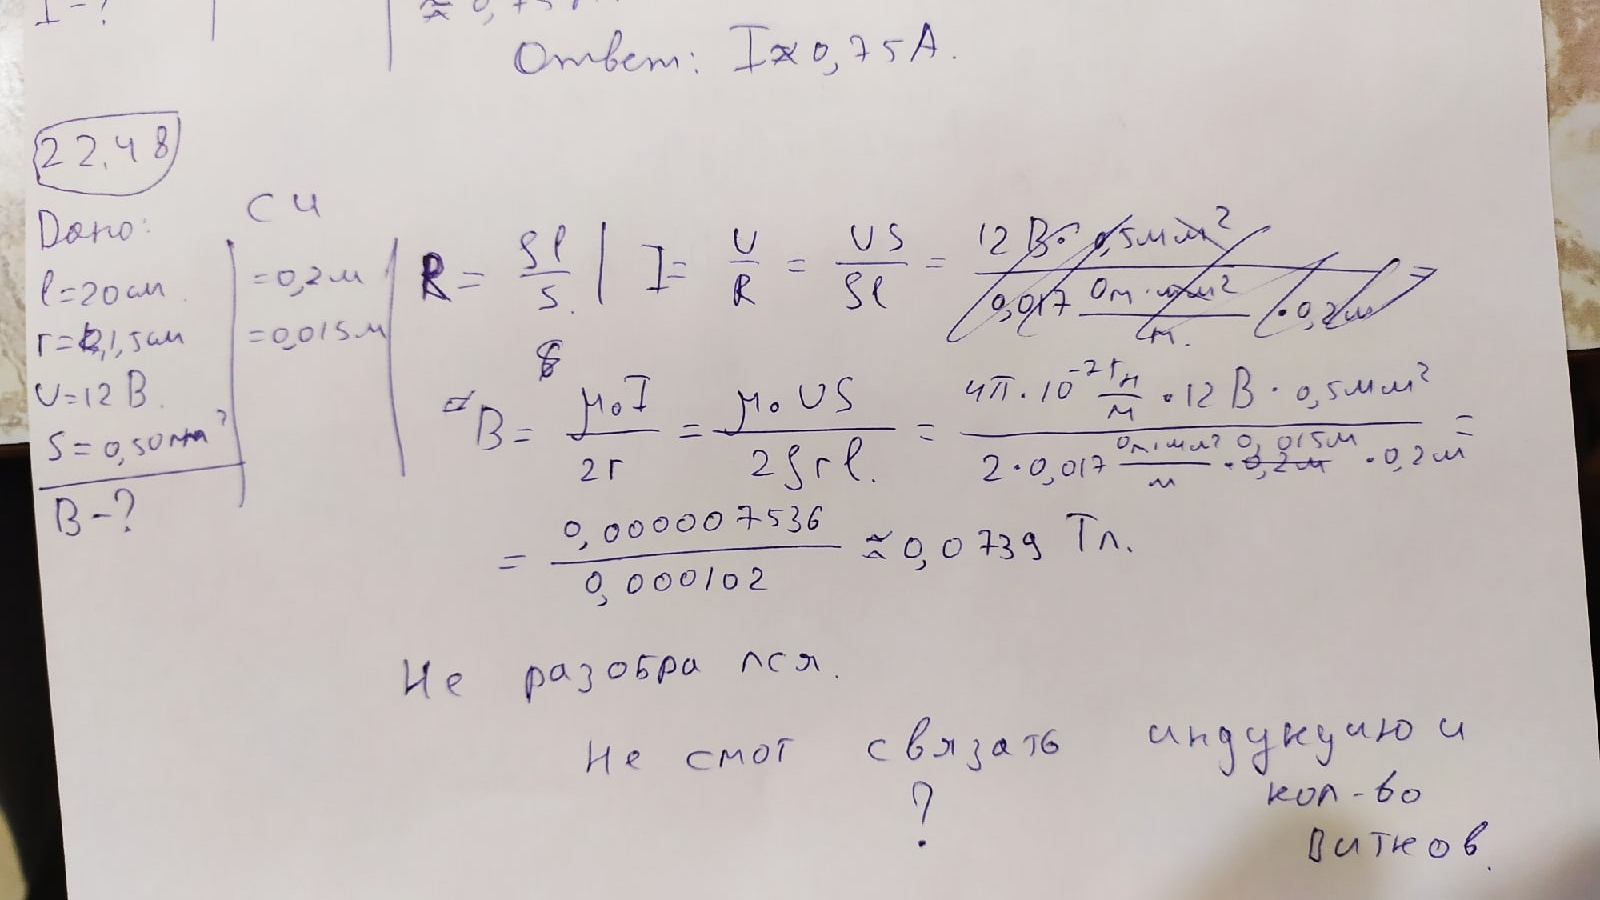 I - ?
≈ 0,75
Ответ: I ≈ 0,75 А.
22.48
Дано:
СИ
l = 20 см
= 0,2 м
r = 1,5 см
= 0,015 м
U = 12 В.
S = 0,50 мм²
B - ?
R = ρl/S. | I = U/R = US/ρl = 12 В · 0,5 мм² / 0,017 Ом·мм²/м · 0,2 м
B = μ₀I/2r = μ₀US/2ρrl. = 4π·10⁻⁷ Гн/м · 12 В · 0,5 мм² / 2·0,017 Ом·мм²/м · 0,015 м · 0,2 м =
= 0,000007536/0,000102 ≈ 0,0739 Тл.
Не разобрался.
Не смог связать индукцию и
кол-во
витков.
?